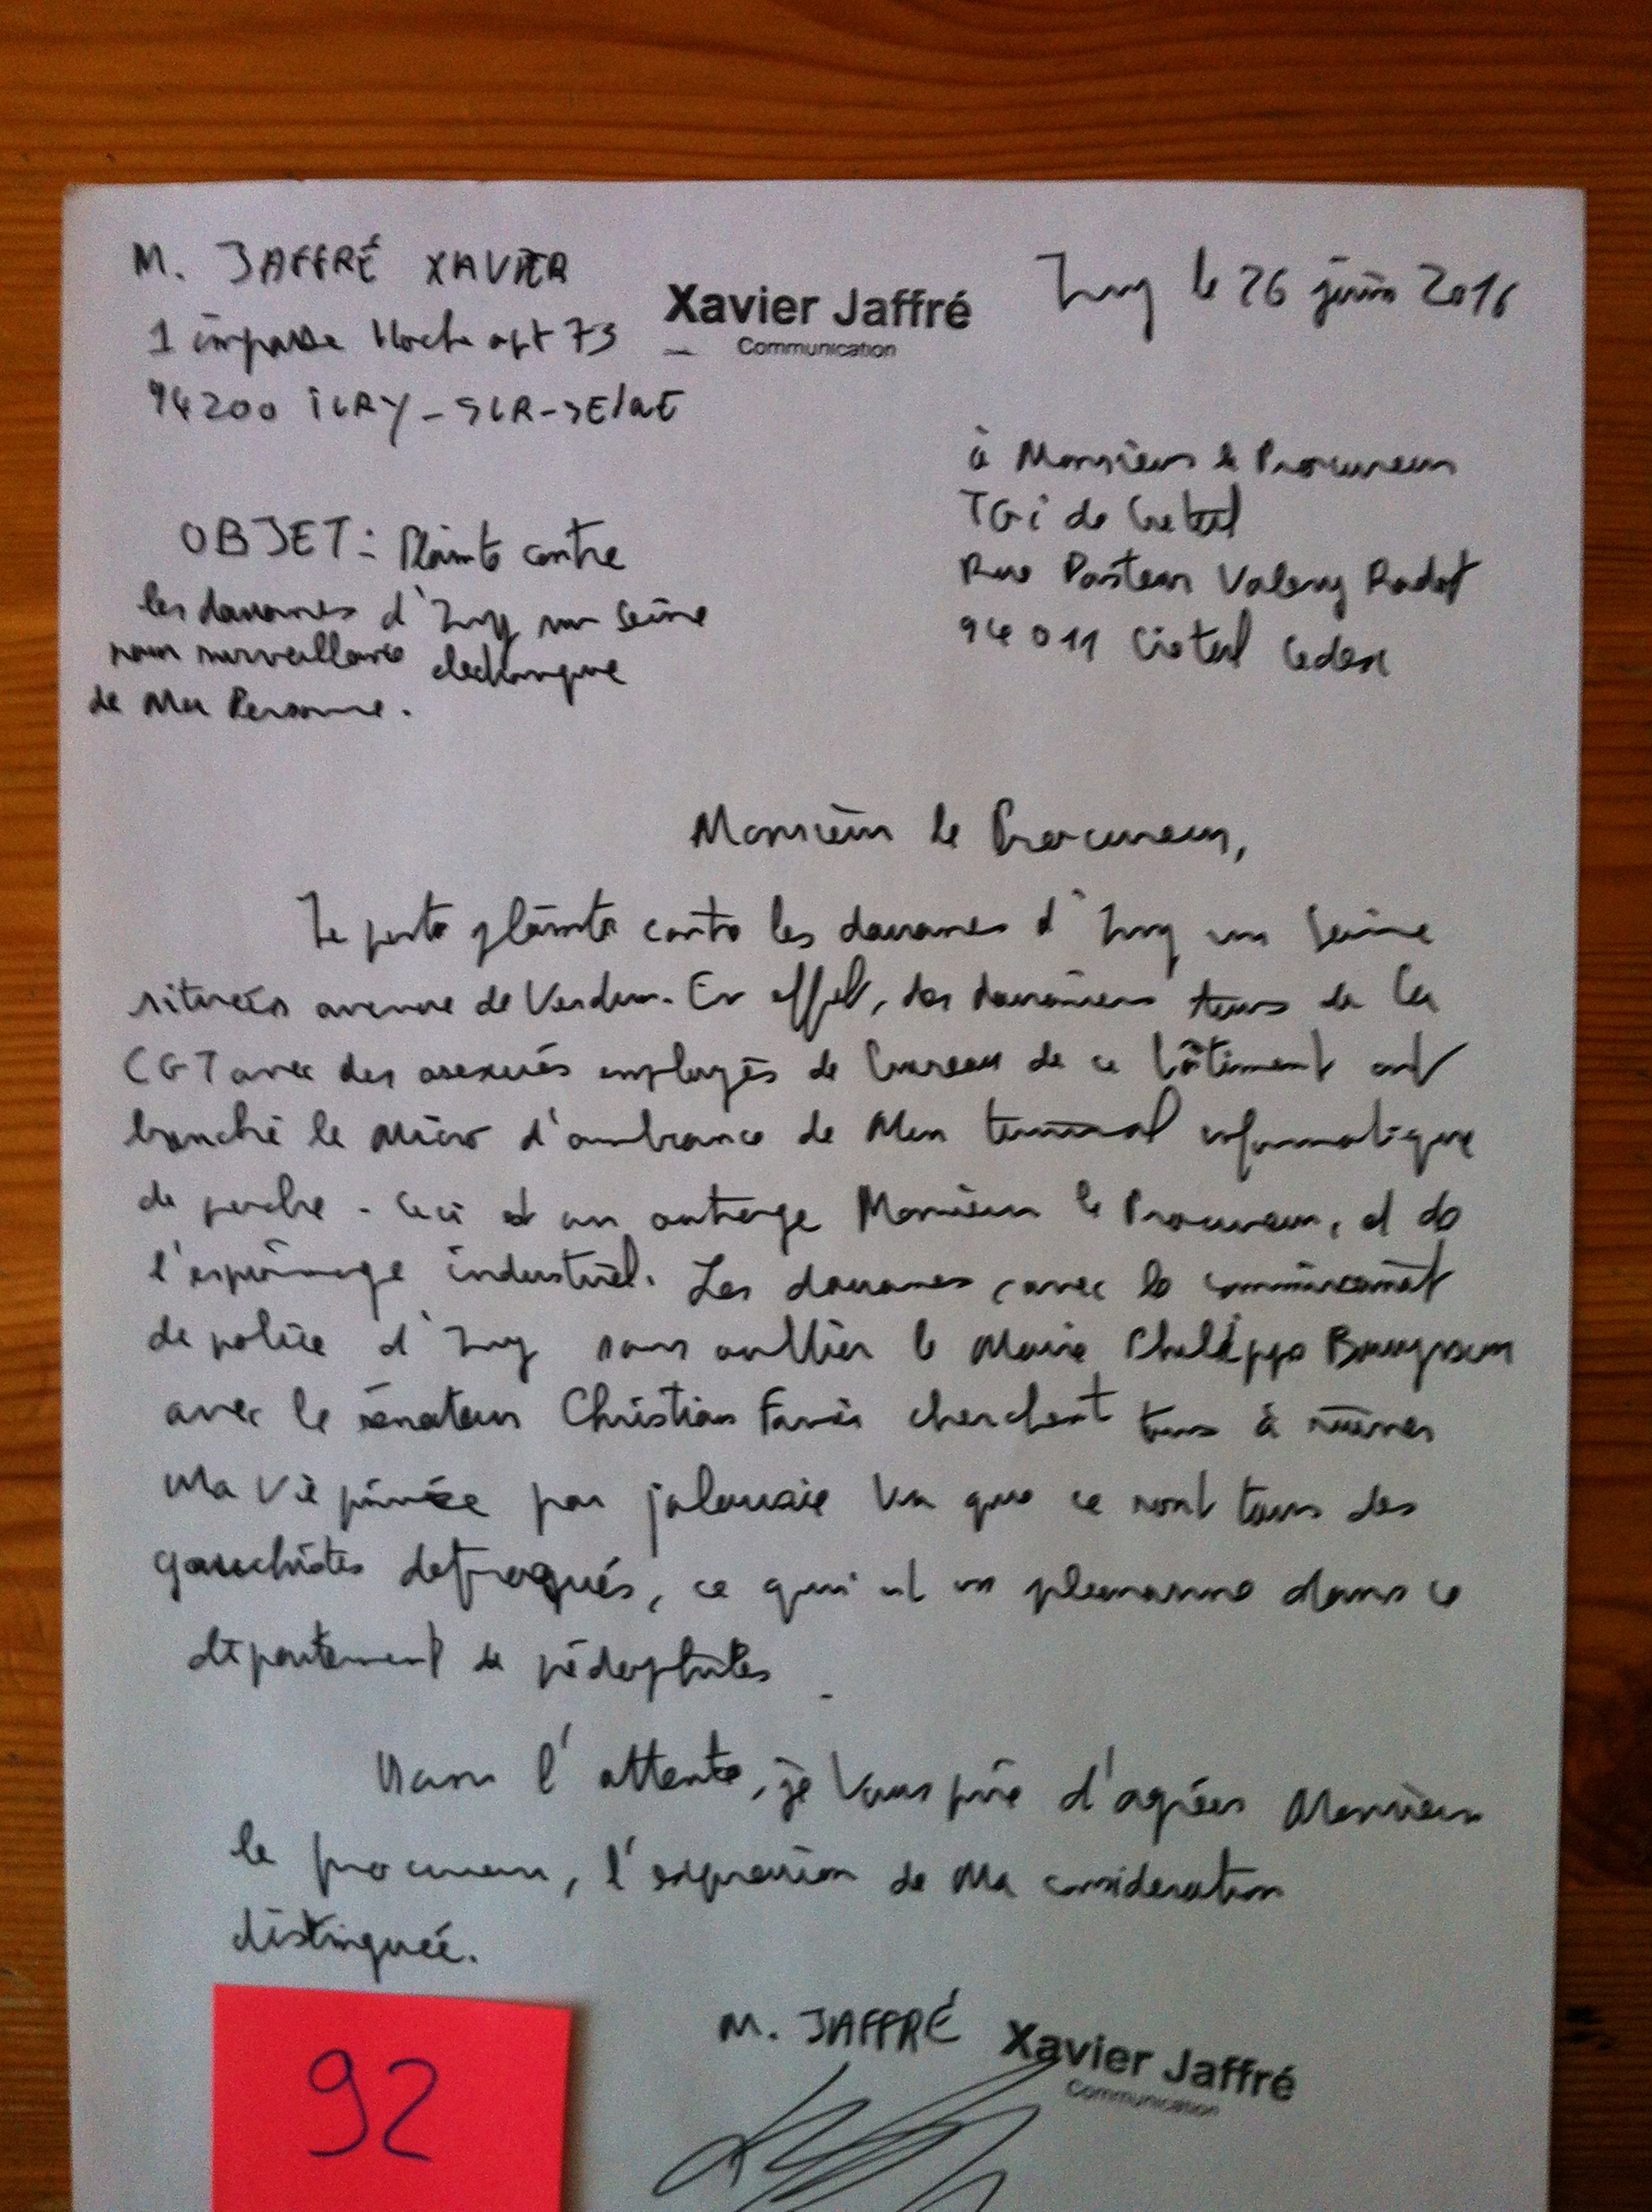 M. JAFFRÉ XAVIER
Xavier Jaffré
Communication
Ivry le 26 juin 2016
1 impasse Hoche apt 73
94200 IVRY-SUR-SEINE
à Monsieur le Procureur
TGI de Creteil
Rue Pasteur Valery Radot
94011 Créteil Cedex
OBJET: Plainte contre
les douanes d'Ivry sur Seine
pour surveillance
de Ma Personne.
Monsieur le Procureur,
Je porte plainte contre les douanes d'Ivry sur Seine
situées avenue de Verdun. En effet, des douaniers tous de la
CGT avec des asexués employés de bureau de ce bâtiment ont
branché le micro d'ambiance de Mon terminal informatique
de poche. Ceci est un outrage Monsieur le Procureur, et de
l'espionnage industriel. Les douanes, avec le commissariat
de police d'Ivry sans oublier le Maire Philippe Bouyssou
avec le sénateur Christian Favier cherchent tous à ruiner
Ma vie privée par jalousie vu que ce sont tous des
gauchistes defroqués, ce qui est un pleonasme dans ce
département de pédophiles.
Dans l'attente, je Vous prie d'agréer Monsieur
le procureur, l'expression de Ma consideration
distinguée.
M. JAFFRÉ
Xavier Jaffré
Communication
92